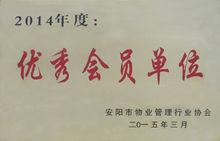 2014年度：
优秀会员单位
安阳市物业管理行业协会
二〇一五年三月